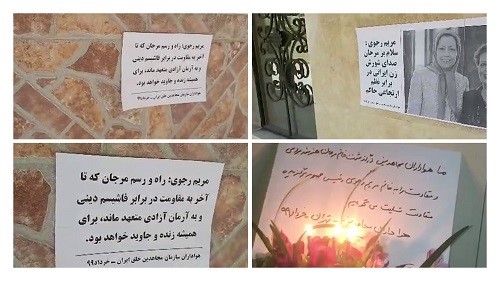 مریم رجوی: راه و رسم مرجان که تا
آخر به مقاومت در برابر فاشیسم دینی
و به آرمان آزادی متعهد ماند، برای
همیشه زنده و جاوید خواهد بود.
هواداران سازمان مجاهدین خلق ایران – خرداد۹۹
مریم رجوی :
سلام بر مرجان
صدای شورش
زن ایرانی در
برابر نظم
ارتجاعی حاکم
مریم رجوی: راه و رسم مرجان که تا
آخر به مقاومت در برابر فاشیسم دینی
و به آرمان آزادی متعهد ماند، برای
همیشه زنده و جاوید خواهد بود.
هواداران سازمان مجاهدین خلق ایران – خرداد۹۹
ما هواداران مجاهدین درگذشت خانم مرجان هنرمند مردمی
و مقاومت را به خانم مریم رجوی رئیس جمهور برگزیده
مقاومت تسلیت می گوییم
هواداران